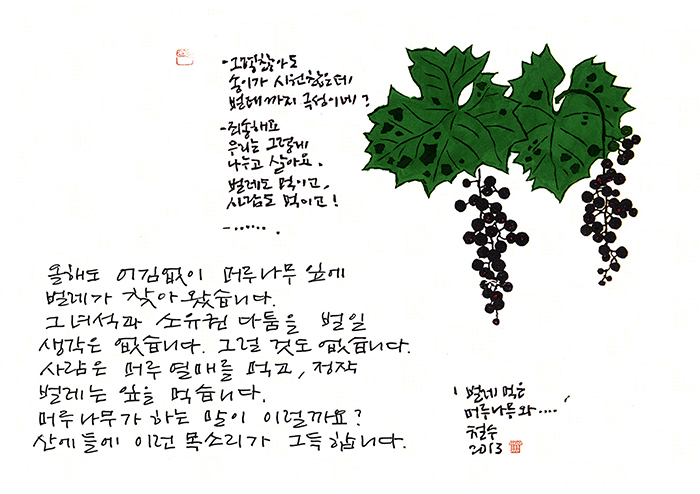 -그렇찮아도
송이가 시원찮은데
벌레까지 극성이네?
-죄송해요
우리는 그렇게
나누고 살아요.
벌레도 먹이고,
사람도 먹이고!
- ...... .
올해도 어김없이 머루나무 잎에
벌레가 찾아 왔습니다.
그 녀석과 소유권 다툼을 벌일
생각은 없습니다. 그럴 것도 없습니다.
사람은 머루 열매를 먹고, 정작
벌레는 잎을 먹습니다.
머루나무가 하는 말이 이럴까요?
산에 들에 이런 목소리가 그득합니다.
' 벌레 먹은
머루나무와 .... '
철수
2013